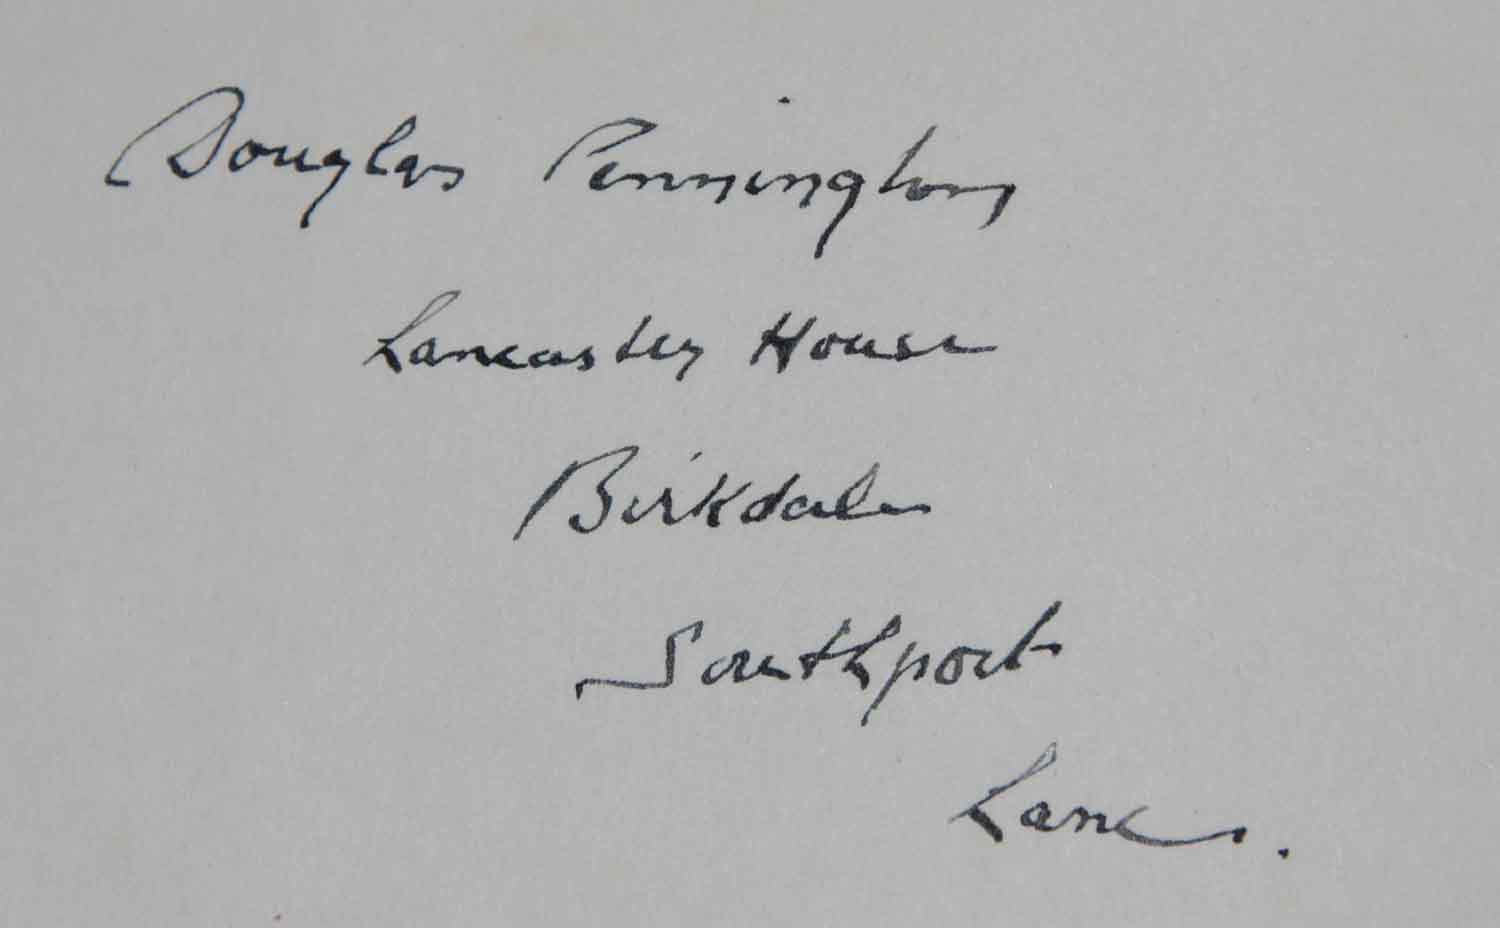 Douglas Pennington
Lancaster House
Birkdale
Southport
Lancs.